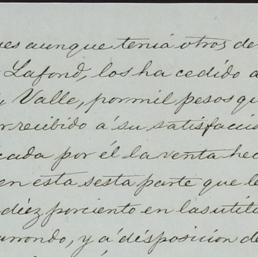 es aunque tenia otros de
Lafond, los ha cedido a
Valle, por mil pesos qu
recibido á su satisfacci
cada por él la venta hec
en esta sesta parte que le
diéz porciento en las utili
rrondo, y á disposicion de